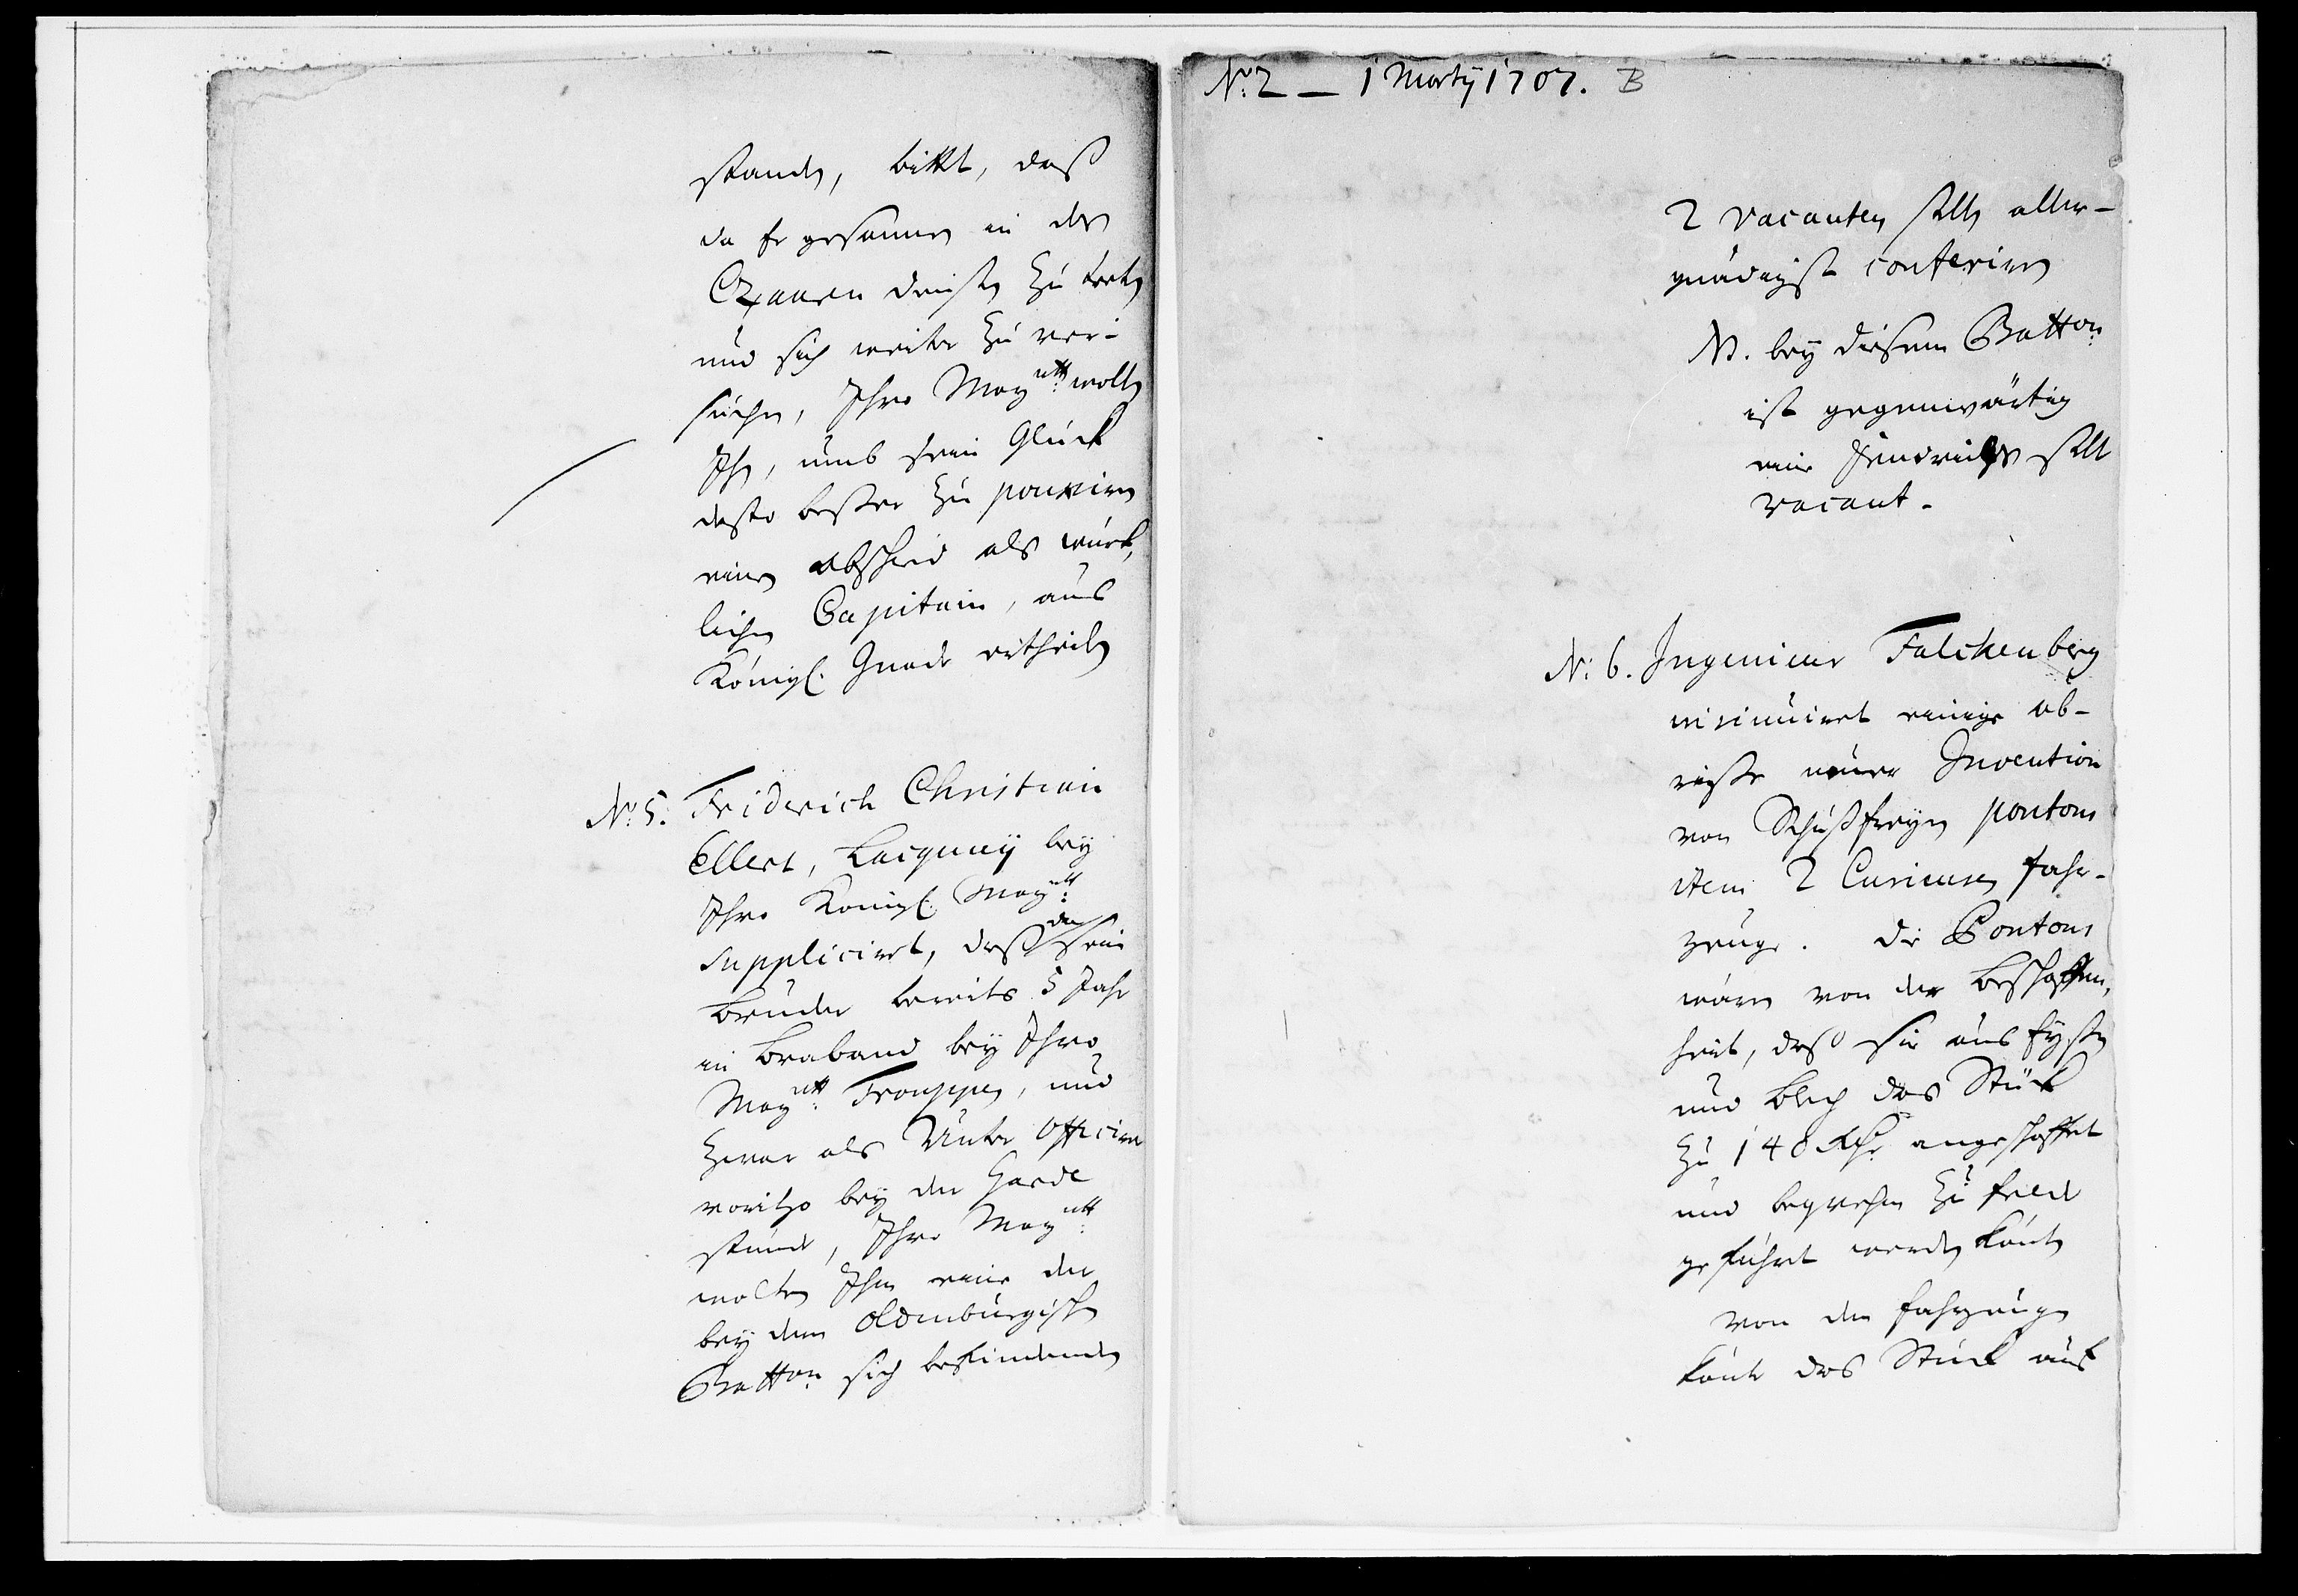 standen, bittet, daß
da Er gesonnen in des
Czaaren diensten zu treten
und sich weiter zu ver-
suchen, Ihro Mayᵗᵗ: wollen
Ihn, umb sein Glück
desto beßer zu poussiren
einen abscheid als würck,
lichen Capitain, aus
Königl. Gnade ertheilen
No: 5. Friderich Christian
Ellert, Lacquey bey
Ihro Königl. Mayᵗᵗ:
suppliciret, daß da sein
Bruder bereits 5 Jahr
in Braband bey Ihro
Mayᵗᵗ: Trouppen, und
zwar als Unter Officirer
voritzo bey der Garde
stünde, Ihro Mayᵗᵗ:
wolten Ihm eine der
bey dem Oldenburgischen
Batton: sich befindenden
No: 2 — 1 Marty 1707. B
2 vacanten stellen aller-
gnädigst conferiren
NB. bey diesem Batton:
ist gegenwärtig
eine Fendrichs stelle
vacant.
No: 6. Ingenieur Falckenberg
insinuiret einige ab-
riße neuer Invention
von Schußfreyen pontons
item 2 Curieusen fahr-
zeuge. Die Pontons
wären von der Beschaffen,
heit, daß sie aus Eysen
und Blech das Stück
zu 140 Rthr angeschaffet
und beqvehm zu felde
geführet werden könten
von den fahrzeugen
könte das Stück aus